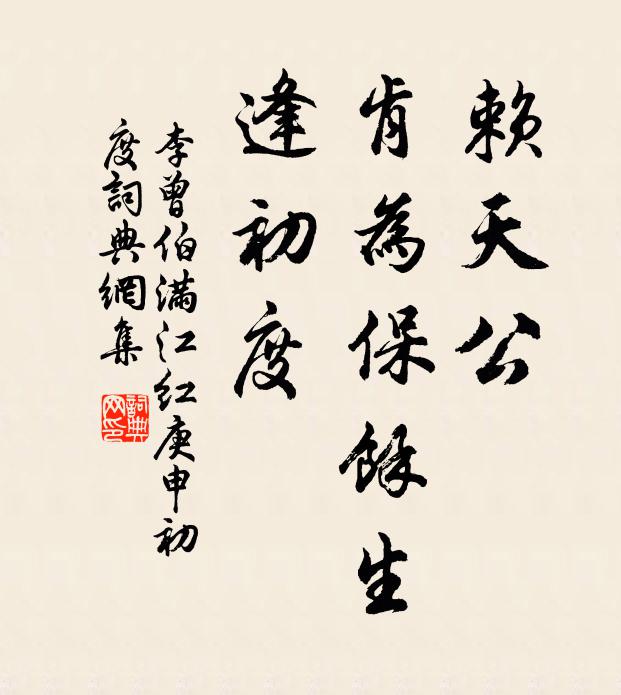 賴天公
肯為保餘生
逢初度
李曾伯滿江紅庚申初
度詞典網集
詞典
网印